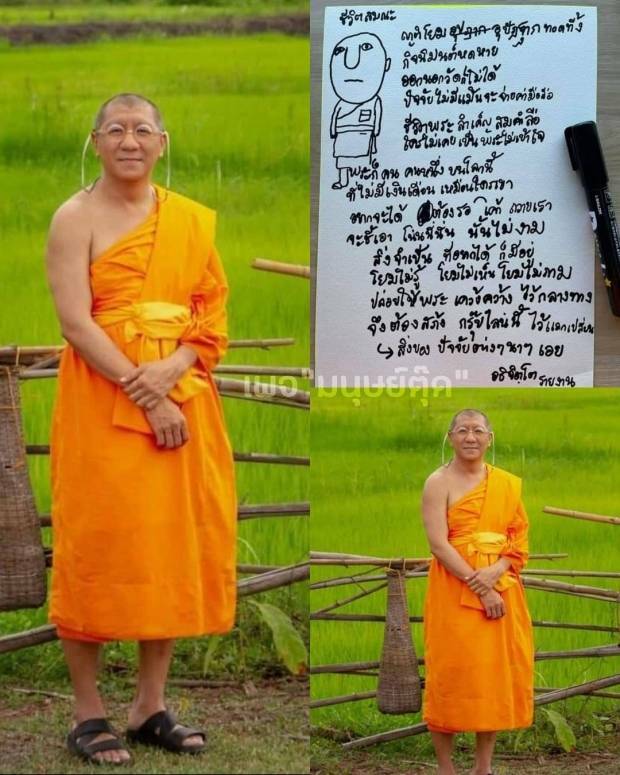 ชีวิตสมณะ
ญาติโยม อุปฐาก อุปัฏฐาก ทอดทิ้ง
กิจนิมนต์หดหาย
ออกนอกวัดก็ไม่ได้
ปัจจัยไม่มีแม้นจะจ่ายค่ามือถือ
ชีวิตพระ สำคัญ สิ่งคือ
ใครไม่เคยเป็นพระไม่เข้าใจ
พระก็คน คนหนึ่ง บนโลกนี้
ที่ไม่มีเงินเดือน เหมือนใครเขา
อยากจะได้ ต้องรอ เขา
จะชี้เอา โน่นนี่นั่น นั้นไม่งาม
สิ่งจำเป็น ที่อยากได้ ก็มีอยู่
โยมไม่รู้ โยมไม่เห็น โยมไม่ถาม
ปล่อยให้พระ เคว้งคว้าง ไว้กลางทาง
จึงต้องสร้าง กรุ๊ปไลน์นี้ ไว้แลกเปลี่ยน
↳ สิ่งของ ปัจจัยต่างๆนาๆ เอย
อธิจิตโต
รายงาน
เพจ"มนุษย์ตุ๊ด"